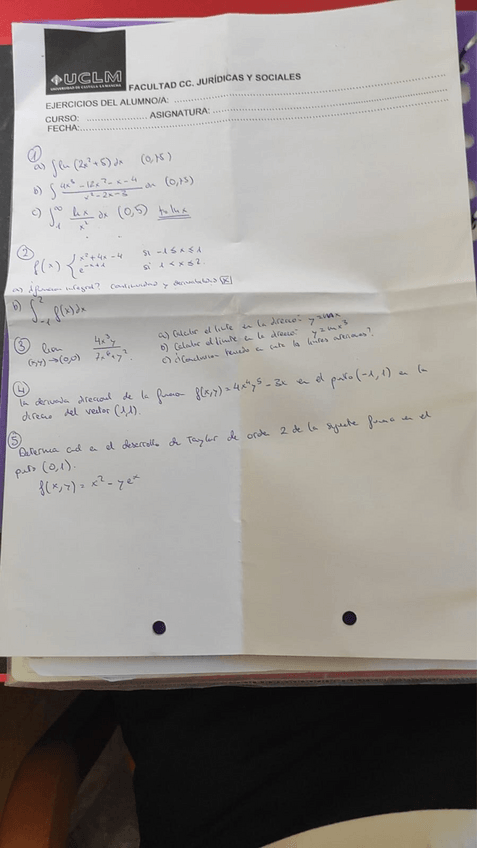 UCLM
UNIVERSIDAD DE CASTILLA-LA MANCHA
FACULTAD CC. JURÍDICAS Y SOCIALES
EJERCICIOS DEL ALUMNO/A:
CURSO: ASIGNATURA:
FECHA:
①
a) ∫ ln (2x² + 5) dx (0,75)
b) ∫ (4x³ - 12x² - x - 4)/(x² - 2x - 3) dx (0,75)
c) ∫₁^∞ ln x/x² dx (0,5)
②
f(x) { x² + 4x - 4 si -1 ≤ x ≤ 1
e^(-x+1) si 1 < x ≤ 2
a) ¿Función integral? continuidad y
b) ∫₋₁² f(x) dx
③ lim (x,y)→(0,0) 4x³y/(2x⁶+y²)
a) Calcular el límite en la dirección y = mx
b) Calcular el límite en la dirección y = mx³
c) ¿Conclusión teniendo en cuenta los límites anteriores?
④
La derivada direccional de la función f(x,y) = 4x⁴y⁵ - 3x en el punto (-1, 1) en la
dirección del vector (1,1).
⑤
Determina cual es el desarrollo de Taylor de orden 2 de la siguiente función en el
punto (0,1).
f(x,y) = x² - yeˣ